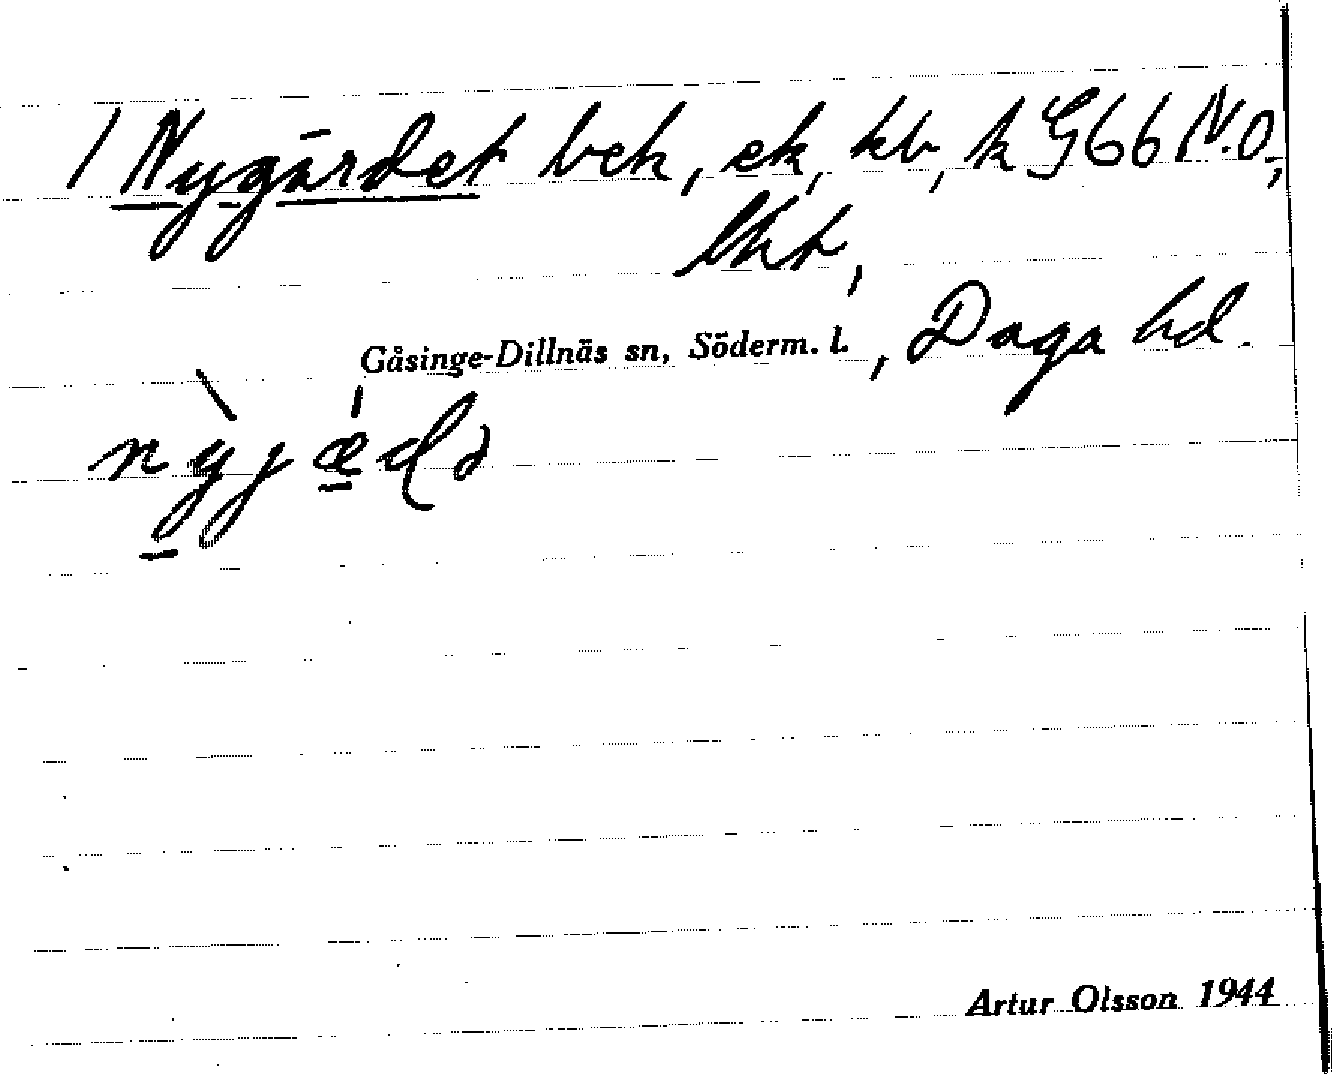 1 Nygärdet bek, ek, kb, k G66 N.O.,
lht,
Gåsinge-Dillnäs sn, Söderm. l., Daga hd.
Artur Olsson 1944